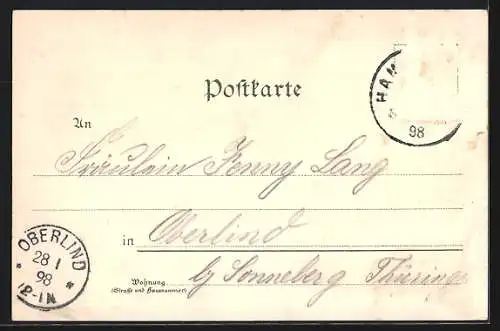 Postkarte
HAM
98
An
Fräulein Jenny Lang
in Oberlind
b/ Sonneberg Thüringen
Wohnung
(Straße und Hausnummer)
OBERLIND
28 1
98
12-1N